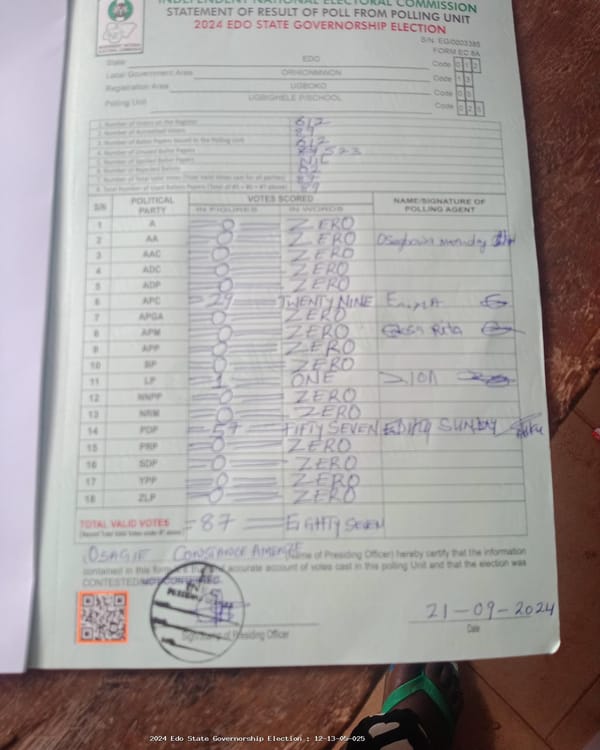 INDEPENDENT NATIONAL ELECTORAL COMMISSION
STATEMENT OF RESULT OF POLL FROM POLLING UNIT
2024 EDO STATE GOVERNORSHIP ELECTION
S/N. EG/0003385
FORM EC 8A
State EDO Code 012
Local Government Area ORHIONMWON Code 13
Registration Area UGBOKO Code 05
Polling Unit UGBIGHELE P/SCHOOL Code 025
1. Number of Voters on the Register 612
2. Number of Accredited Voters 89
3. Number of Ballot Papers Issued to the Polling Unit 612
4. Number of Unused Ballot Papers 523
5. Number of Spoiled Ballot Papers NIL
6. Number of Rejected Ballots 02
7. Number of Total Valid Votes (Total Valid Votes cast for all parties) 87
8. Total Number of Used Ballot Papers (Total of #5 + #6 + #7 above) 89
S/N POLITICAL PARTY VOTES SCORED NAME/SIGNATURE OF POLLING AGENT
IN FIGURES IN WORDS
1 A 0 ZERO
2 AA 0 ZERO monday
3 AAC 0 ZERO
4 ADC 0 ZERO
5 ADP 0 ZERO
6 APC 29 TWENTY NINE
7 APGA 0 ZERO
8 APM 0 ZERO Rita
9 APP 0 ZERO
10 BP 0 ZERO
11 LP 1 ONE
12 NNPP 0 ZERO
13 NRM 0 ZERO
14 PDP 57 FIFTY SEVEN SUNDAY
15 PRP 0 ZERO
16 SDP 0 ZERO
17 YPP 0 ZERO
18 ZLP 0 ZERO
TOTAL VALID VOTES = 87 = EIGHTY SEVEN
OSAGIE CONSTANCE (Name of Presiding Officer) hereby certify that the information
contained in this form is a true and accurate account of votes cast in this polling Unit and that the election was
CONTESTED/NOT CONTESTED.
21-09-2024
Signature of Presiding Officer Date
2024 Edo State Governorship Election : 12-13-05-025